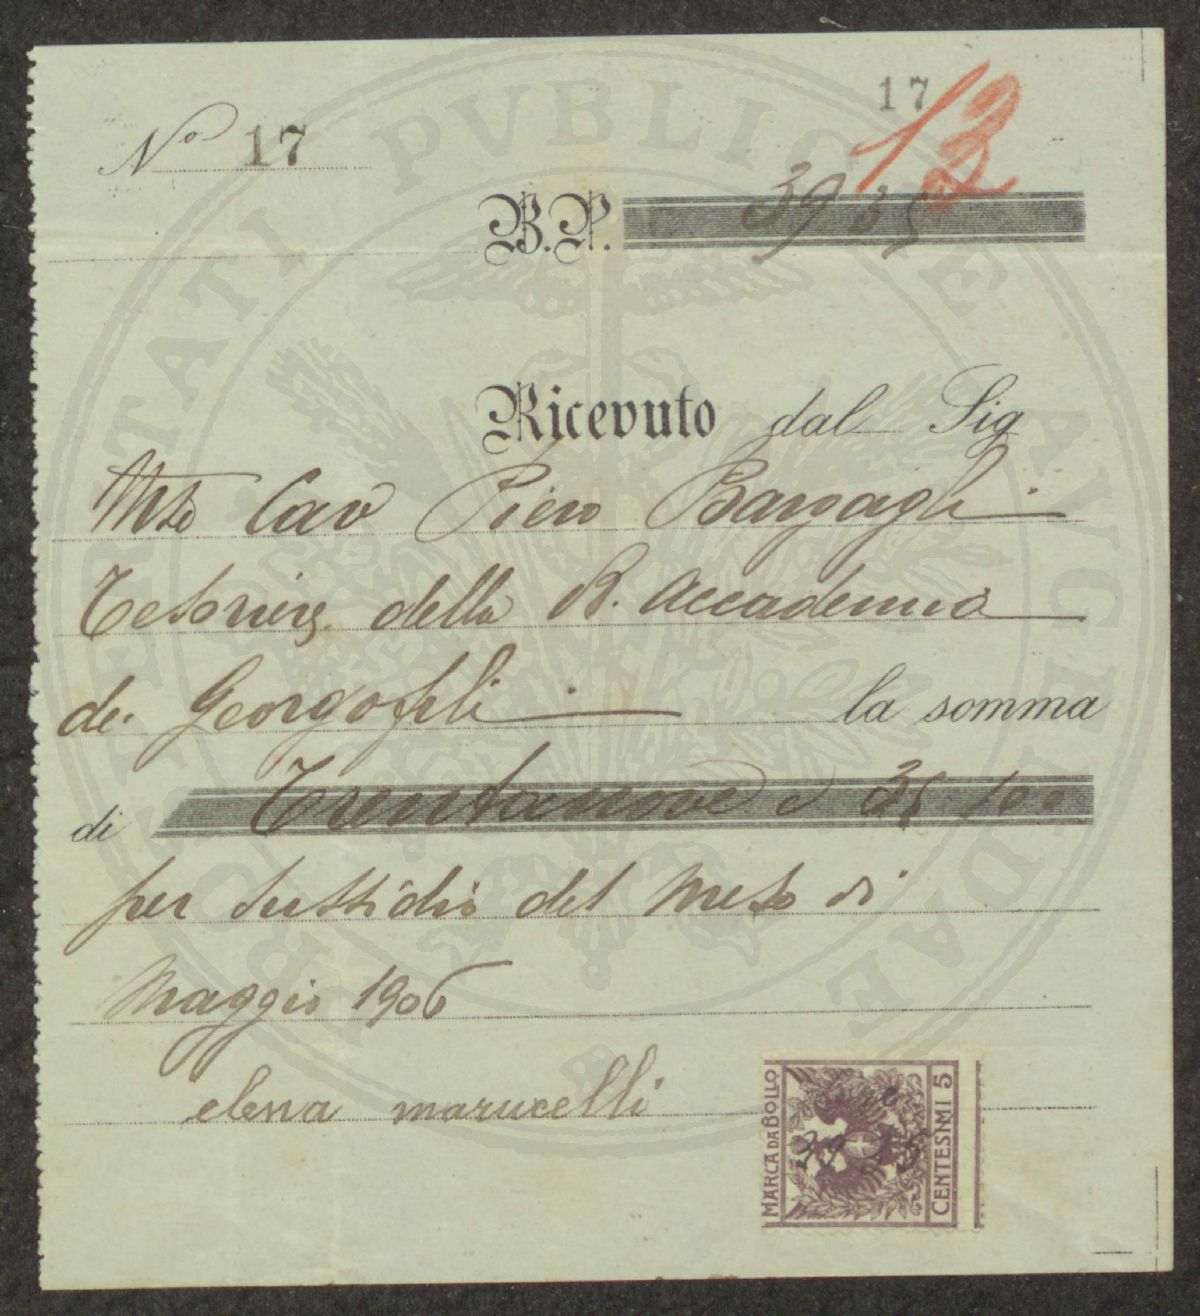 17
13
Nº 17
B.P. 39 35
Ricevuto dal Sig
Cav Piero Bargagli
Tesoriere della R. Accademia
dei Georgofili la somma
di Trentanove e 35/100
per sussidio del Mese di
Maggio 1906
elena marucelli
MARCA DA BOLLO
39 35
CENTESIMI 5
PROSPERITATI PVBLICAE AVGENDAE